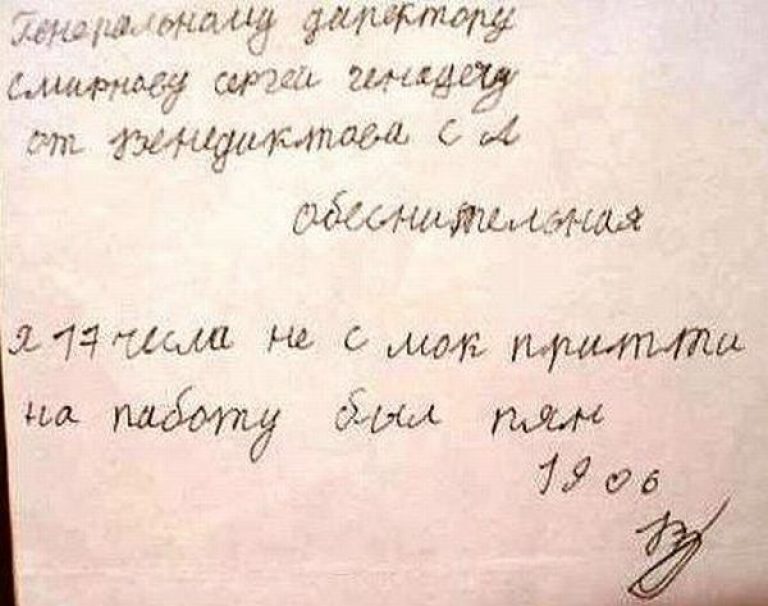 Генеральному директору
Смирнову сергей генадечу
от Венедиктова С А
обеснительная
я 17 чесла не с мок притти
на паботу был пян
19 06